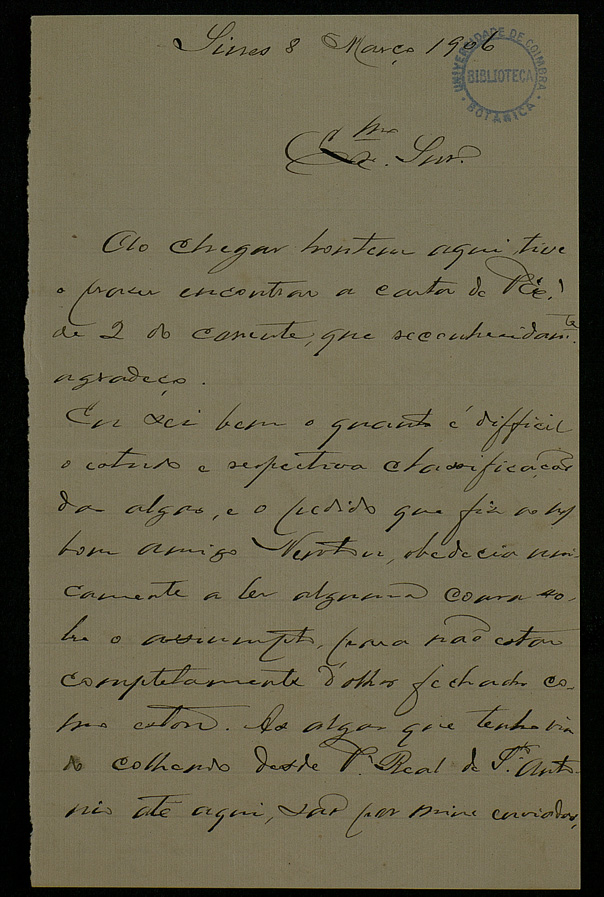 Sines 8 Março 1906
UNIVERSIDADE DE COIMBRA
BIBLIOTECA
BOTÂNICA
Exmo. Snr.
Ao chegar hontem aqui tive
o prazer encontrar a carta de V. Exª.
de 2 do corrente, que reconhecidamte.
agradeço.
Eu sei bem o quanto é difficil
o estudo e respectiva classificação
das algas, e o pedido que fiz ao
bom amigo Newton, obedecia uni-
camente a ler alguma cousa so-
bre o assumpto, para não estar
completamente d'olhos fechados co-
mo estou. As algas que tenho vin-
do colhendo desde Vª. Real de Stº. Anto-
nio até aqui, são por mim enviadas,